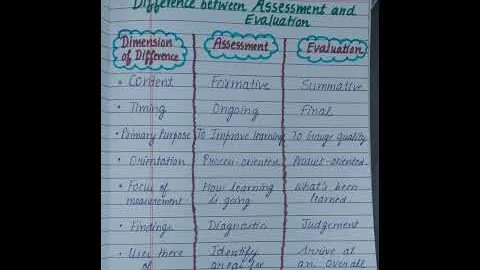 Difference between Assessment and
Evaluation
Dimension of Difference Assessment Evaluation
• Content Formative Summative
• Timing Ongoing Final
• Primary Purpose To Improve learning To Gauge quality
• Orientation Process-oriented Product-oriented
• Focus of How learning What's been
measurement is going learned
• Findings Diagnostics Judgement
• Uses there Identify Arrive at
of areas for an overall